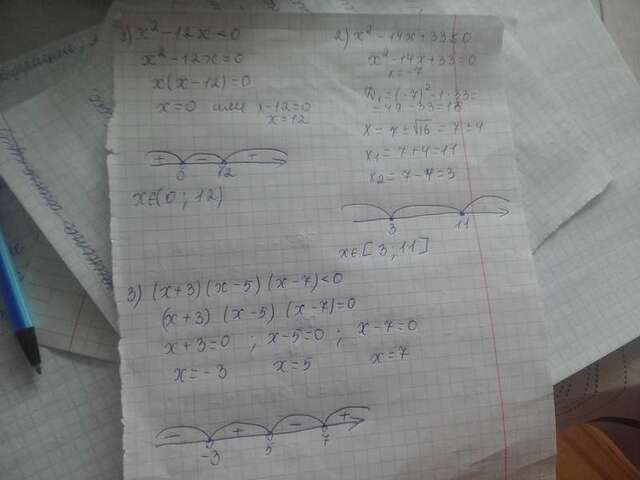 3) x² - 12x < 0
x² - 12x = 0
x(x-12) = 0
x = 0 или x-12=0
x=12
+ 0 - 12 +
x∈(0; 12)
2) x² - 14x + 33 ≤ 0
x² - 14x + 33 = 0
= 49 - 33 = 16
x = 7 ± √16 = 7 ± 4
x₁ = 7 + 4 = 11
x₂ = 7 - 4 = 3
3 11
x∈[3; 11]
3) (x+3)(x-5)(x-7)<0
(x+3)(x-5)(x-7)=0
x+3=0; x-5=0; x-7=0
x=-3 x=5 x=7
- -3 + 5 - 7 +